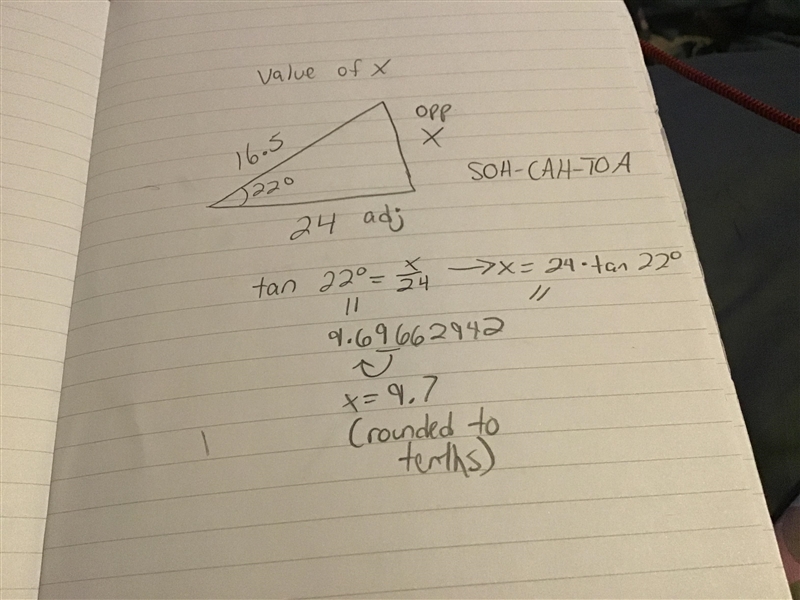 Value of x
opp
X
16.5
22°
SOH-CAH-TOA
24 adj
tan 22° = x/24 → x = 24·tan 22°
" "
9.69662942
x = 9.7
(rounded to
tenths)